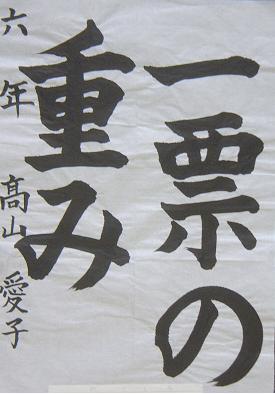 一票の
重み
六年 髙山愛子